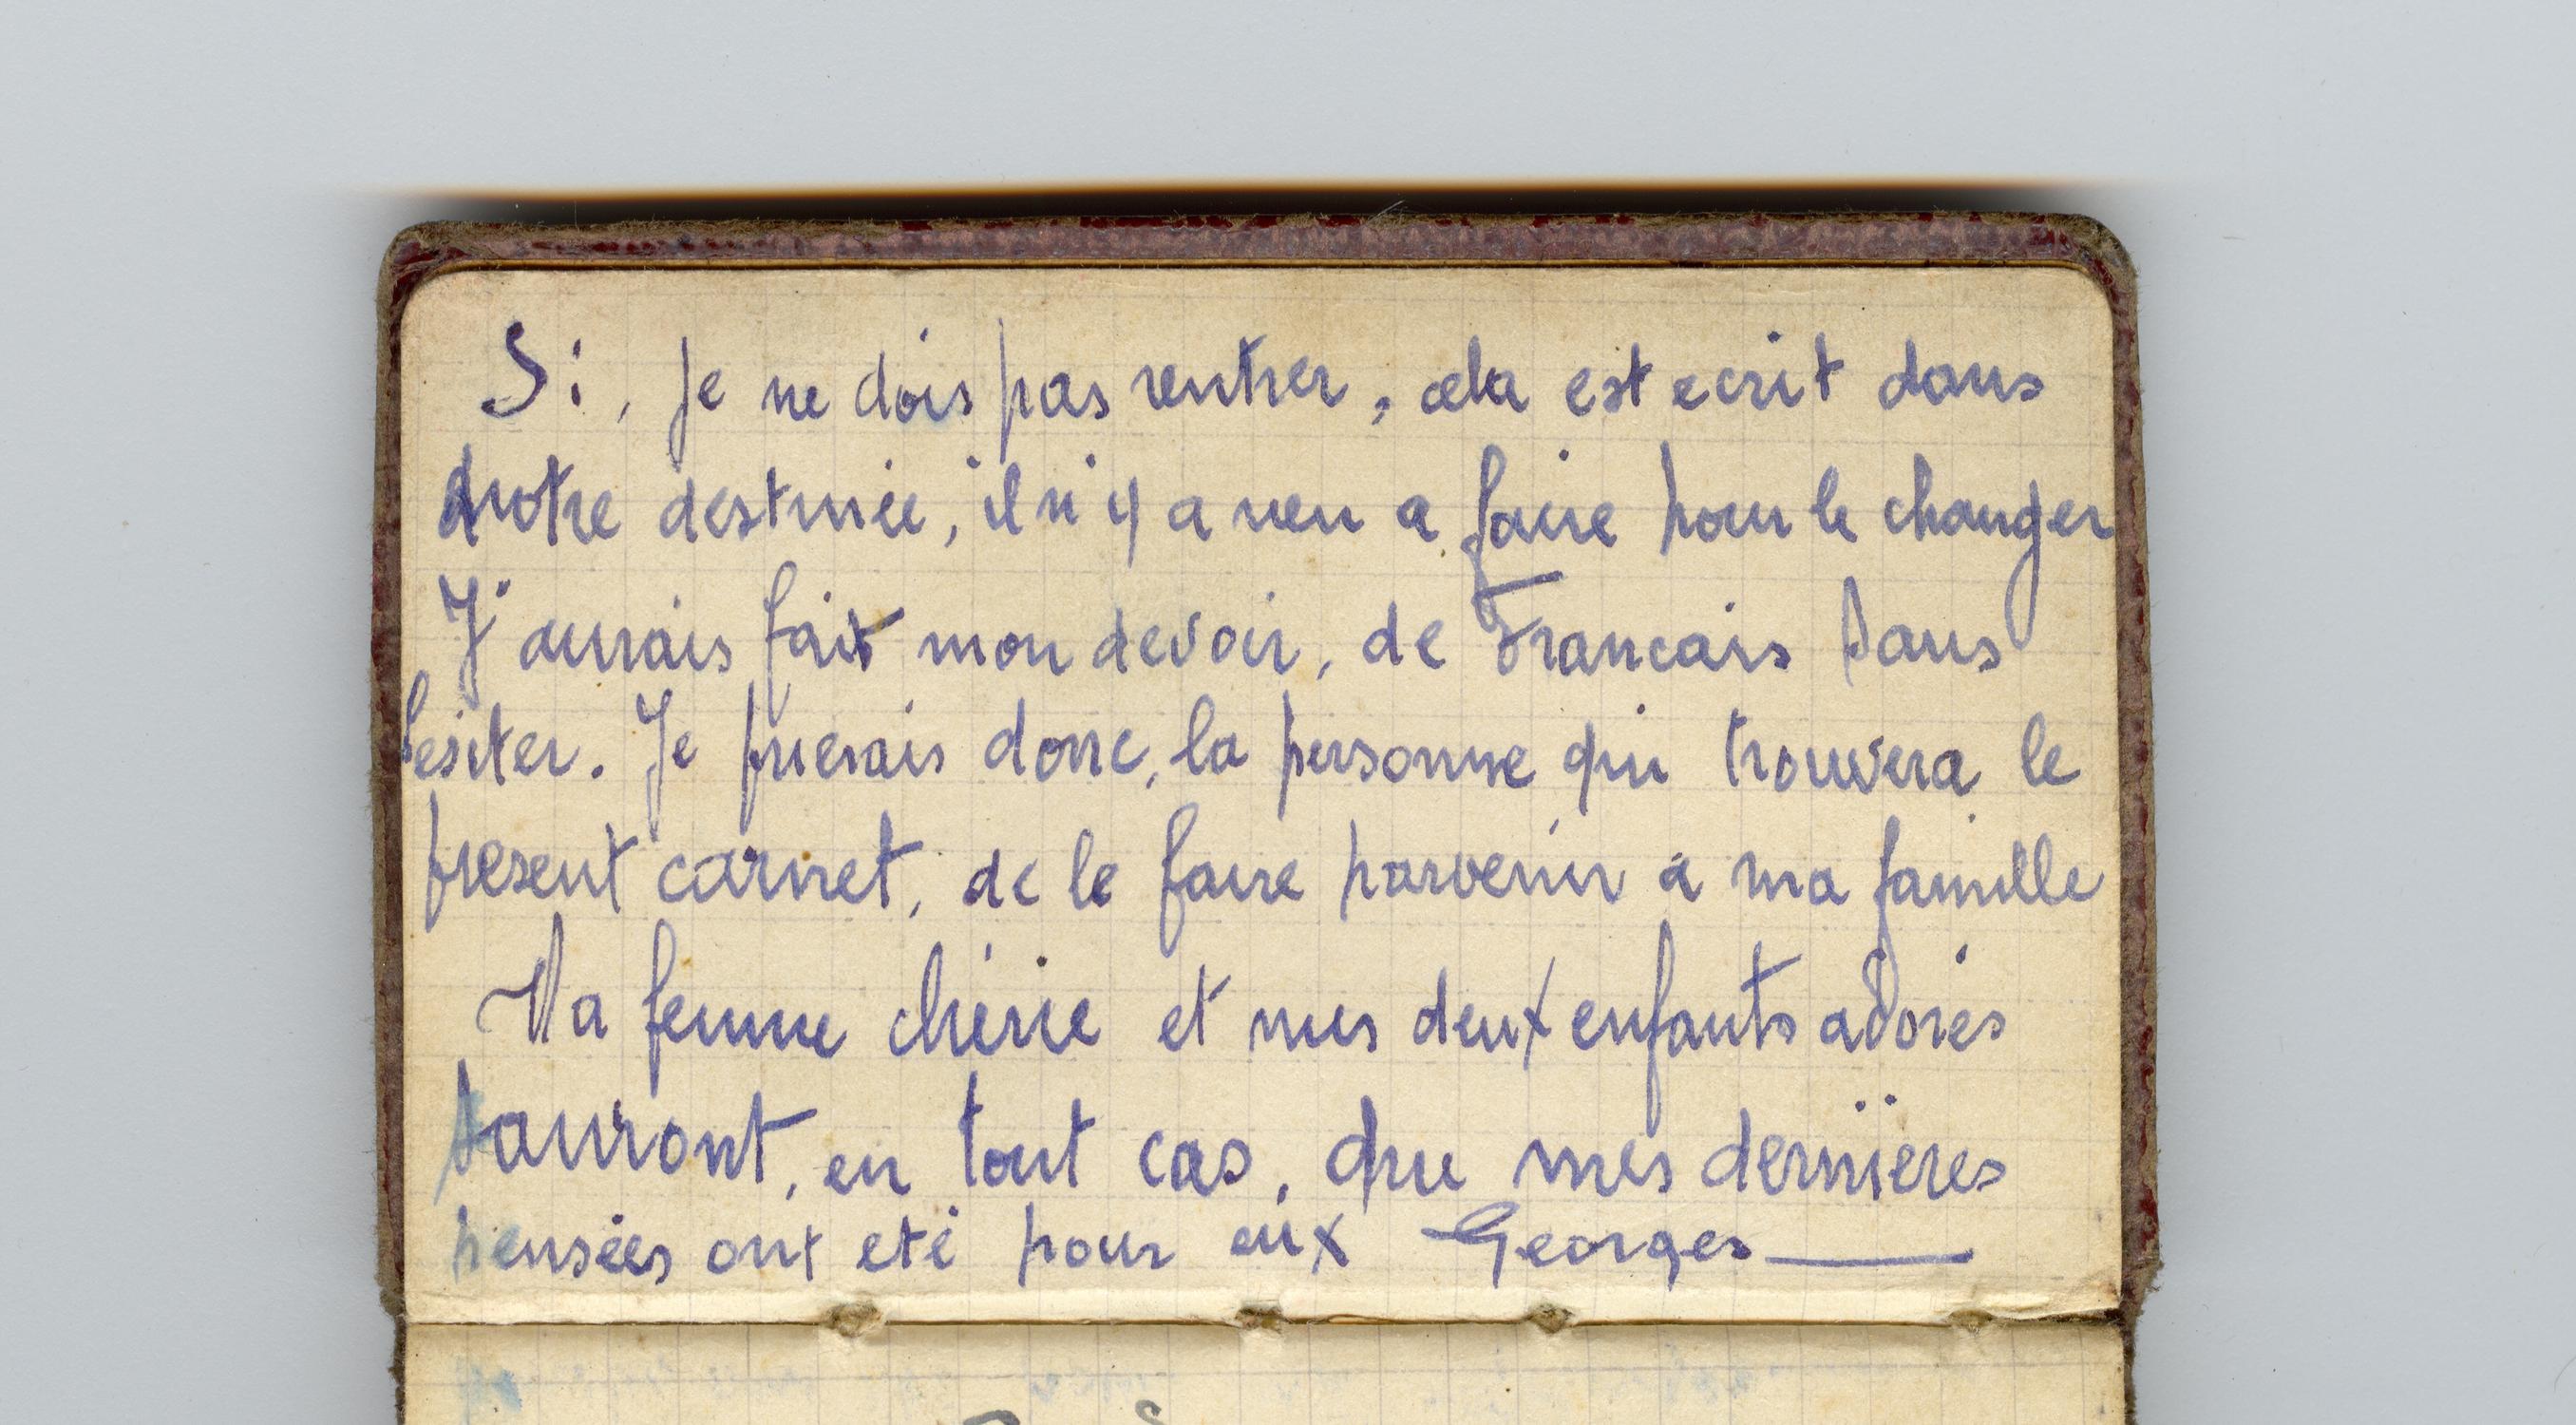 Si, je ne dois pas rentrer, cela est ecrit dans
notre destinée, il n'y a rien a faire pour le changer
J'aurais fait mon devoir, de Francais Sans
hesiter. Je prierais donc, la personne qui trouvera le
present carnet, de le faire parvenir à ma famille
Ma femme chérie et mes deux enfants adorés
Sauront, en tout cas, que mes dernieres
pensées ont eté pour eux Georges